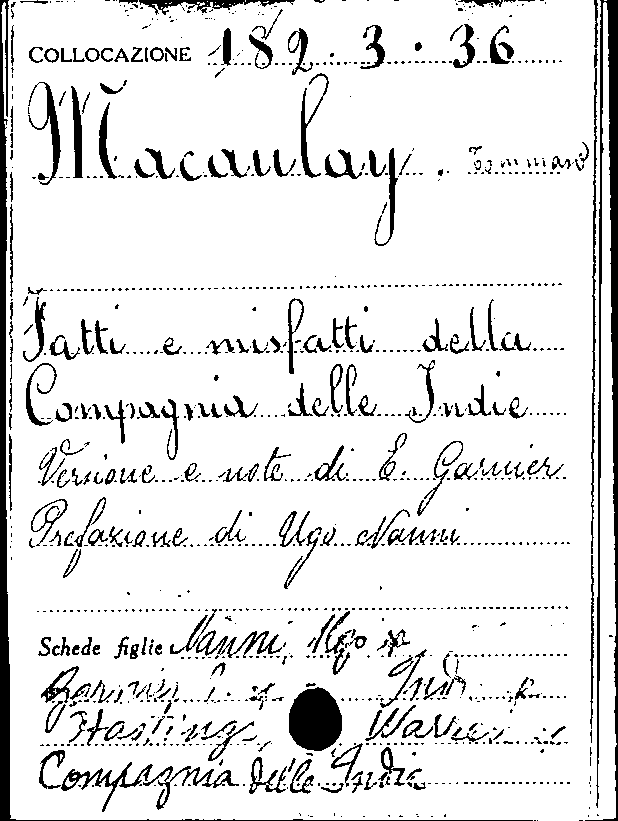 COLLOCAZIONE 182.3.36
Macaulay. Tommaso
Fatti e misfatti della
Compagnia delle Indie
Versione e note di E. Garnier
Prefazione di Ugo Nanni
Schede figlie Nanni, Ugo x
Garnier E. x - Indi
Hastings, Warren
Compagnia delle Indie